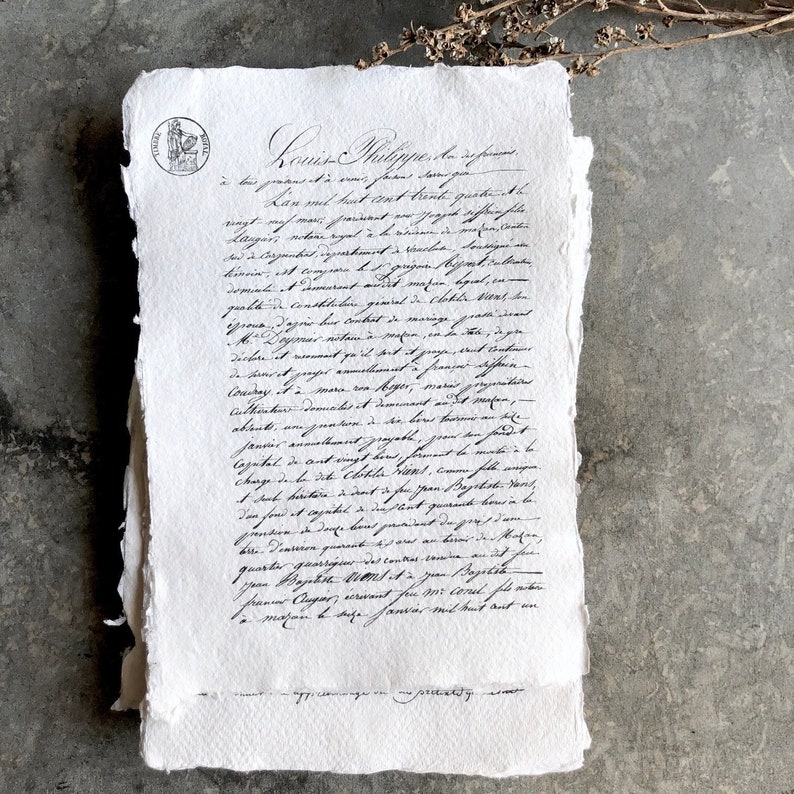 TIMBRE ROYAL
Louis Philippe, Roi des français,
à tous presens et à venir, faisons savoir que
L'an mil huit cent trente quatre et le
vingt neuf mars, pardevant nous Joseph siffrein félix
Laugier, notaire royal à la résidence de mazan, canton
sud de carpentras, département de vaucluse, soussigné et
témoins, est comparu le Sr grégoire Reynet, cultivateur
domicilié et demeurant au dit mazan, lequel, en
qualité de constitutaire général de Clotilde Vens son
épouse, d'après leur contrat de mariage passé devant
Me Deymier notaire à mazan, en sa date, de gré
déclare et reconnait qu'il doit et paye, veut continuer
de servir et payer annuellement à françois siffrein
Coudray et à marie rose Reyer, mariés propriétaires
cultivateurs domiciliés et demeurant au dit mazan,
absents, une pension de six livres tournois au seize
janvier annuellement payable, pour son fond et
capital de cent vingt livres, formant la moitié à la
charge de la dite Clotilde Vens, comme fille unique
et seule héritière de droit de feu Jean Baptiste Vens,
d'un fond et capital de deux cent quarante livres à la
pension de douze livres procédant du prix d'une
terre d'environ quarante six ares au terroir de Mazan,
quartier des contras vendue au dit feu
Jean Baptiste Vens et à Jean Baptiste
françois Augier, écrivant feu me conil fils notaire
à mazan le seize Janvier mil huit cent un